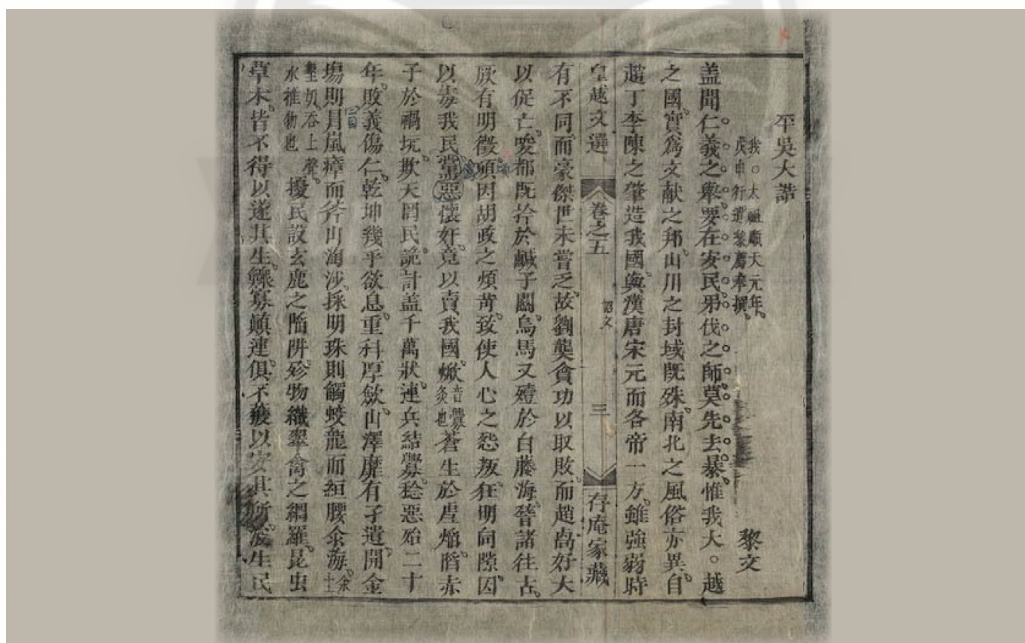 平吳大誥
我○太祖順天元年。
戊申行遣黎廌奉撰。
黎文
盖聞仁義之舉。要在安民。弔伐之師。莫先去暴。惟我大○越
之國。實爲文献之邦。山川之封域既殊。南北之風俗亦異。自
趙丁李陳之肇造我國。與漢唐宋元而各帝一方。雖強弱時
皇越文選 卷之五 詔文 三 存庵家藏
有不同。而豪傑世未嘗乏。故劉龑貪功以取敗。而趙卨好大
以促亡。唆都既拎於鹹子關。烏馬又殪於白藤海。稽諸往古。
厥有明徵。頃因胡政之煩苛。致使人心之怨叛。狂明伺隙。因
以毒我民。黨惡懷奸。竟以賣我國。焮音釁灸也蒼生於虐焰。䧟赤
子於禍坑。欺天罔民。詭計盖千萬狀。連兵結釁。稔惡殆二十
年。敗義傷仁。乾坤幾乎欲息。重科厚歛。山澤靡有孑遺。開金
塲則冒嵐瘴而斧山淘沙。採明珠則觸蛟龍而絙腰汆海。汆土
墾切。吞上聲。水推物也 擾民設玄鹿之陷阱。殄物織翠禽之網羅。昆虫
草木。皆不得以遂其生。鰥寡顛連。俱不獲以安其所。浚生民